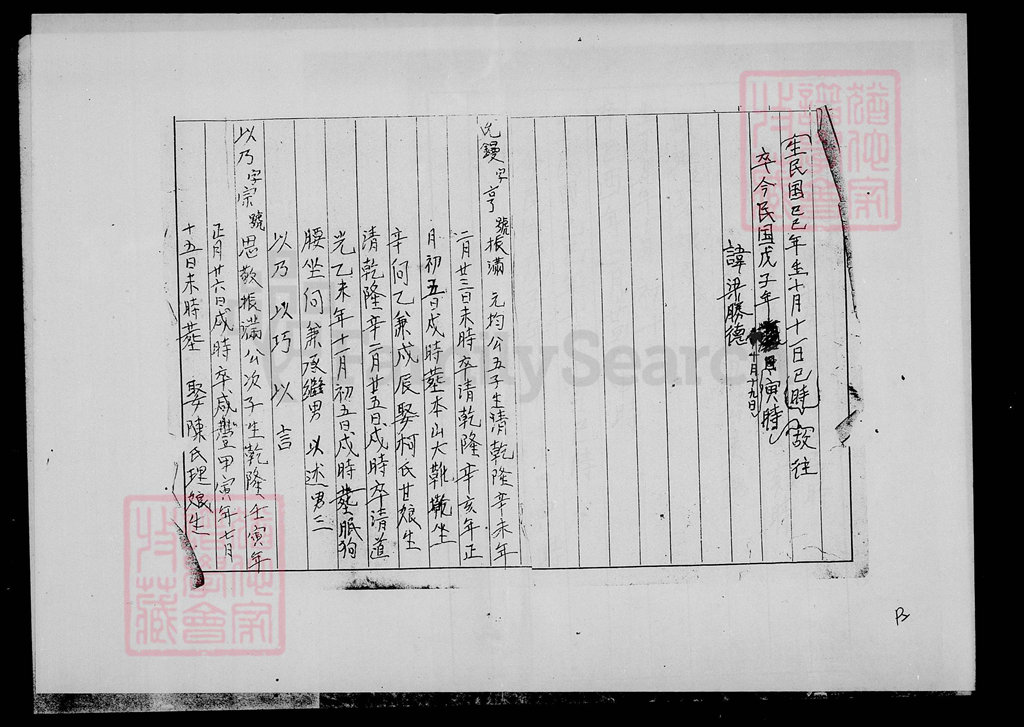 生民国己巳年生十月十一日巳時故往
卒今民国戊子年十月十九日寅時
諱梁勝德
鏝字亨號振滿元均公五子生清乾隆辛未年
二月廿三日未時卒清乾隆辛亥年正
月初五日戌時塟本山大鞍坐
辛向乙兼戌辰娶柯氏甘娘生
清乾隆辛二月廿五日戌時卒清道
光乙未年十一月初五日戌時塟眠狗
腰坐向兼承繼男以述男三
以乃以巧以言
以乃字宗號思敬振滿公次子生乾隆壬寅年
正月廿六日戌時卒咸豐甲寅年七月
十五日未時塟娶陳氏理娘生
FamilySearch